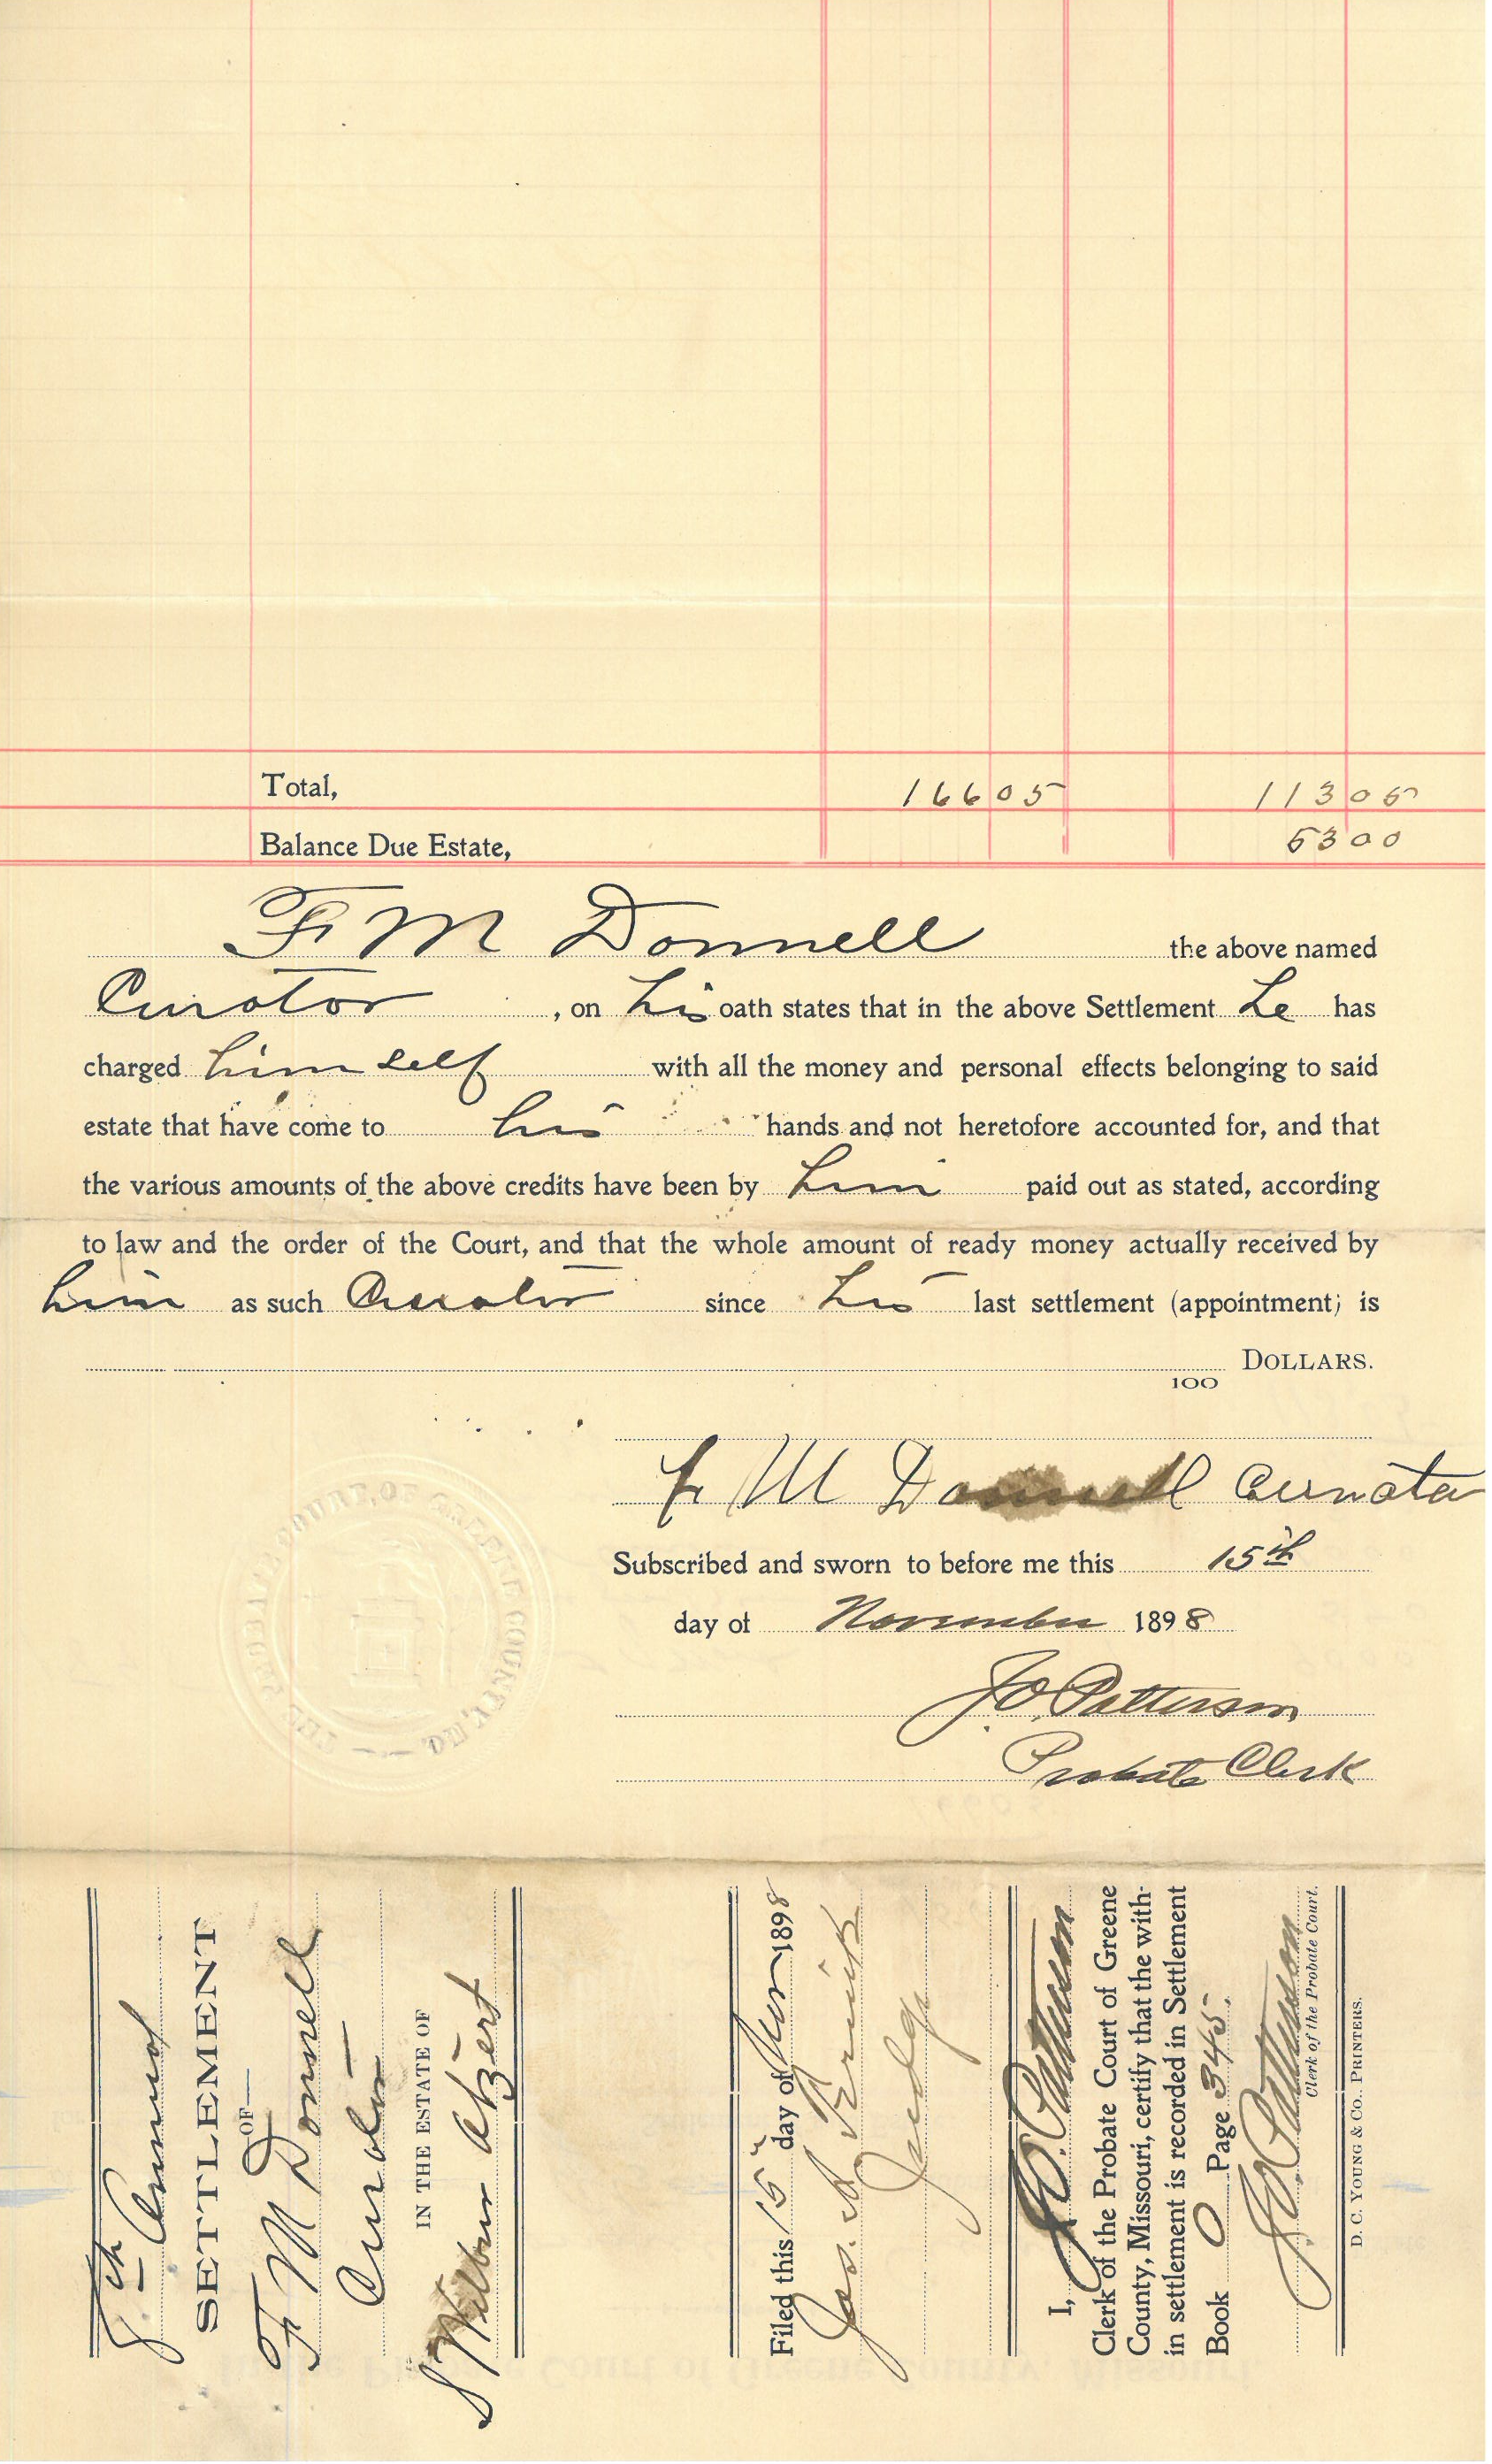 Total, 166 05 113 05
Balance Due Estate, 53 00
F M Donnell the above named
Curator , on his oath states that in the above Settlement he has
charged himself with all the money and personal effects belonging to said
estate that have come to his hands and not heretofore accounted for, and that
the various amounts of the above credits have been by him paid out as stated, according
to law and the order of the Court, and that the whole amount of ready money actually received by
him as such Curator since his last settlement (appointment) is
100 DOLLARS.
F M Donnell Curator
Subscribed and sworn to before me this 15th
day of November 1898
J.O. Patterson
Probate Clerk
THE PROBATE COURT, OF GREENE COUNTY, MO.
8th Annual
SETTLEMENT
OF
F M Donnell
Curator
IN THE ESTATE OF
S Wilbur Atzert
Filed this 15" day of Nov 1898
Jas. A
Judge
I, J.O. Patterson
Clerk of the Probate Court of Greene
County, Missouri, certify that the with-
in settlement is recorded in Settlement
Book O Page 345.
J.O. Patterson
Clerk of the Probate Court.
D. C. YOUNG & CO., PRINTERS.